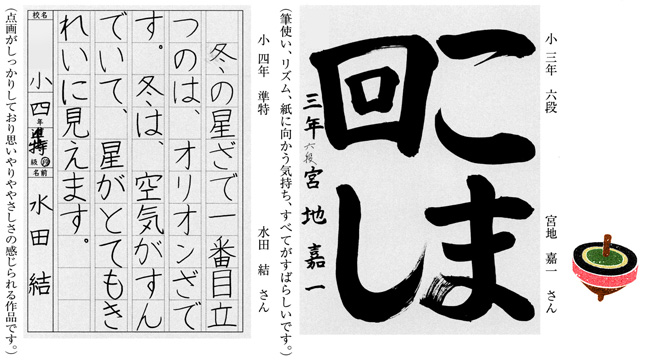 小 三年 六段 宮地 嘉一 さん
こま
回し
三年 六段 宮地嘉一
(筆使い、リズム、紙に向かう気持ち、すべてがすばらしいです。)
小 四年 準特 水田 結 さん
冬の星ざで一番目立
つのは、オリオンざで
す。冬は、空気がすん
でいて、星がとてもき
れいに見えます。
校名 小四年 準特 級 名前 水田結
(点画がしっかりしており思いやりややさしさの感じられる作品です。)